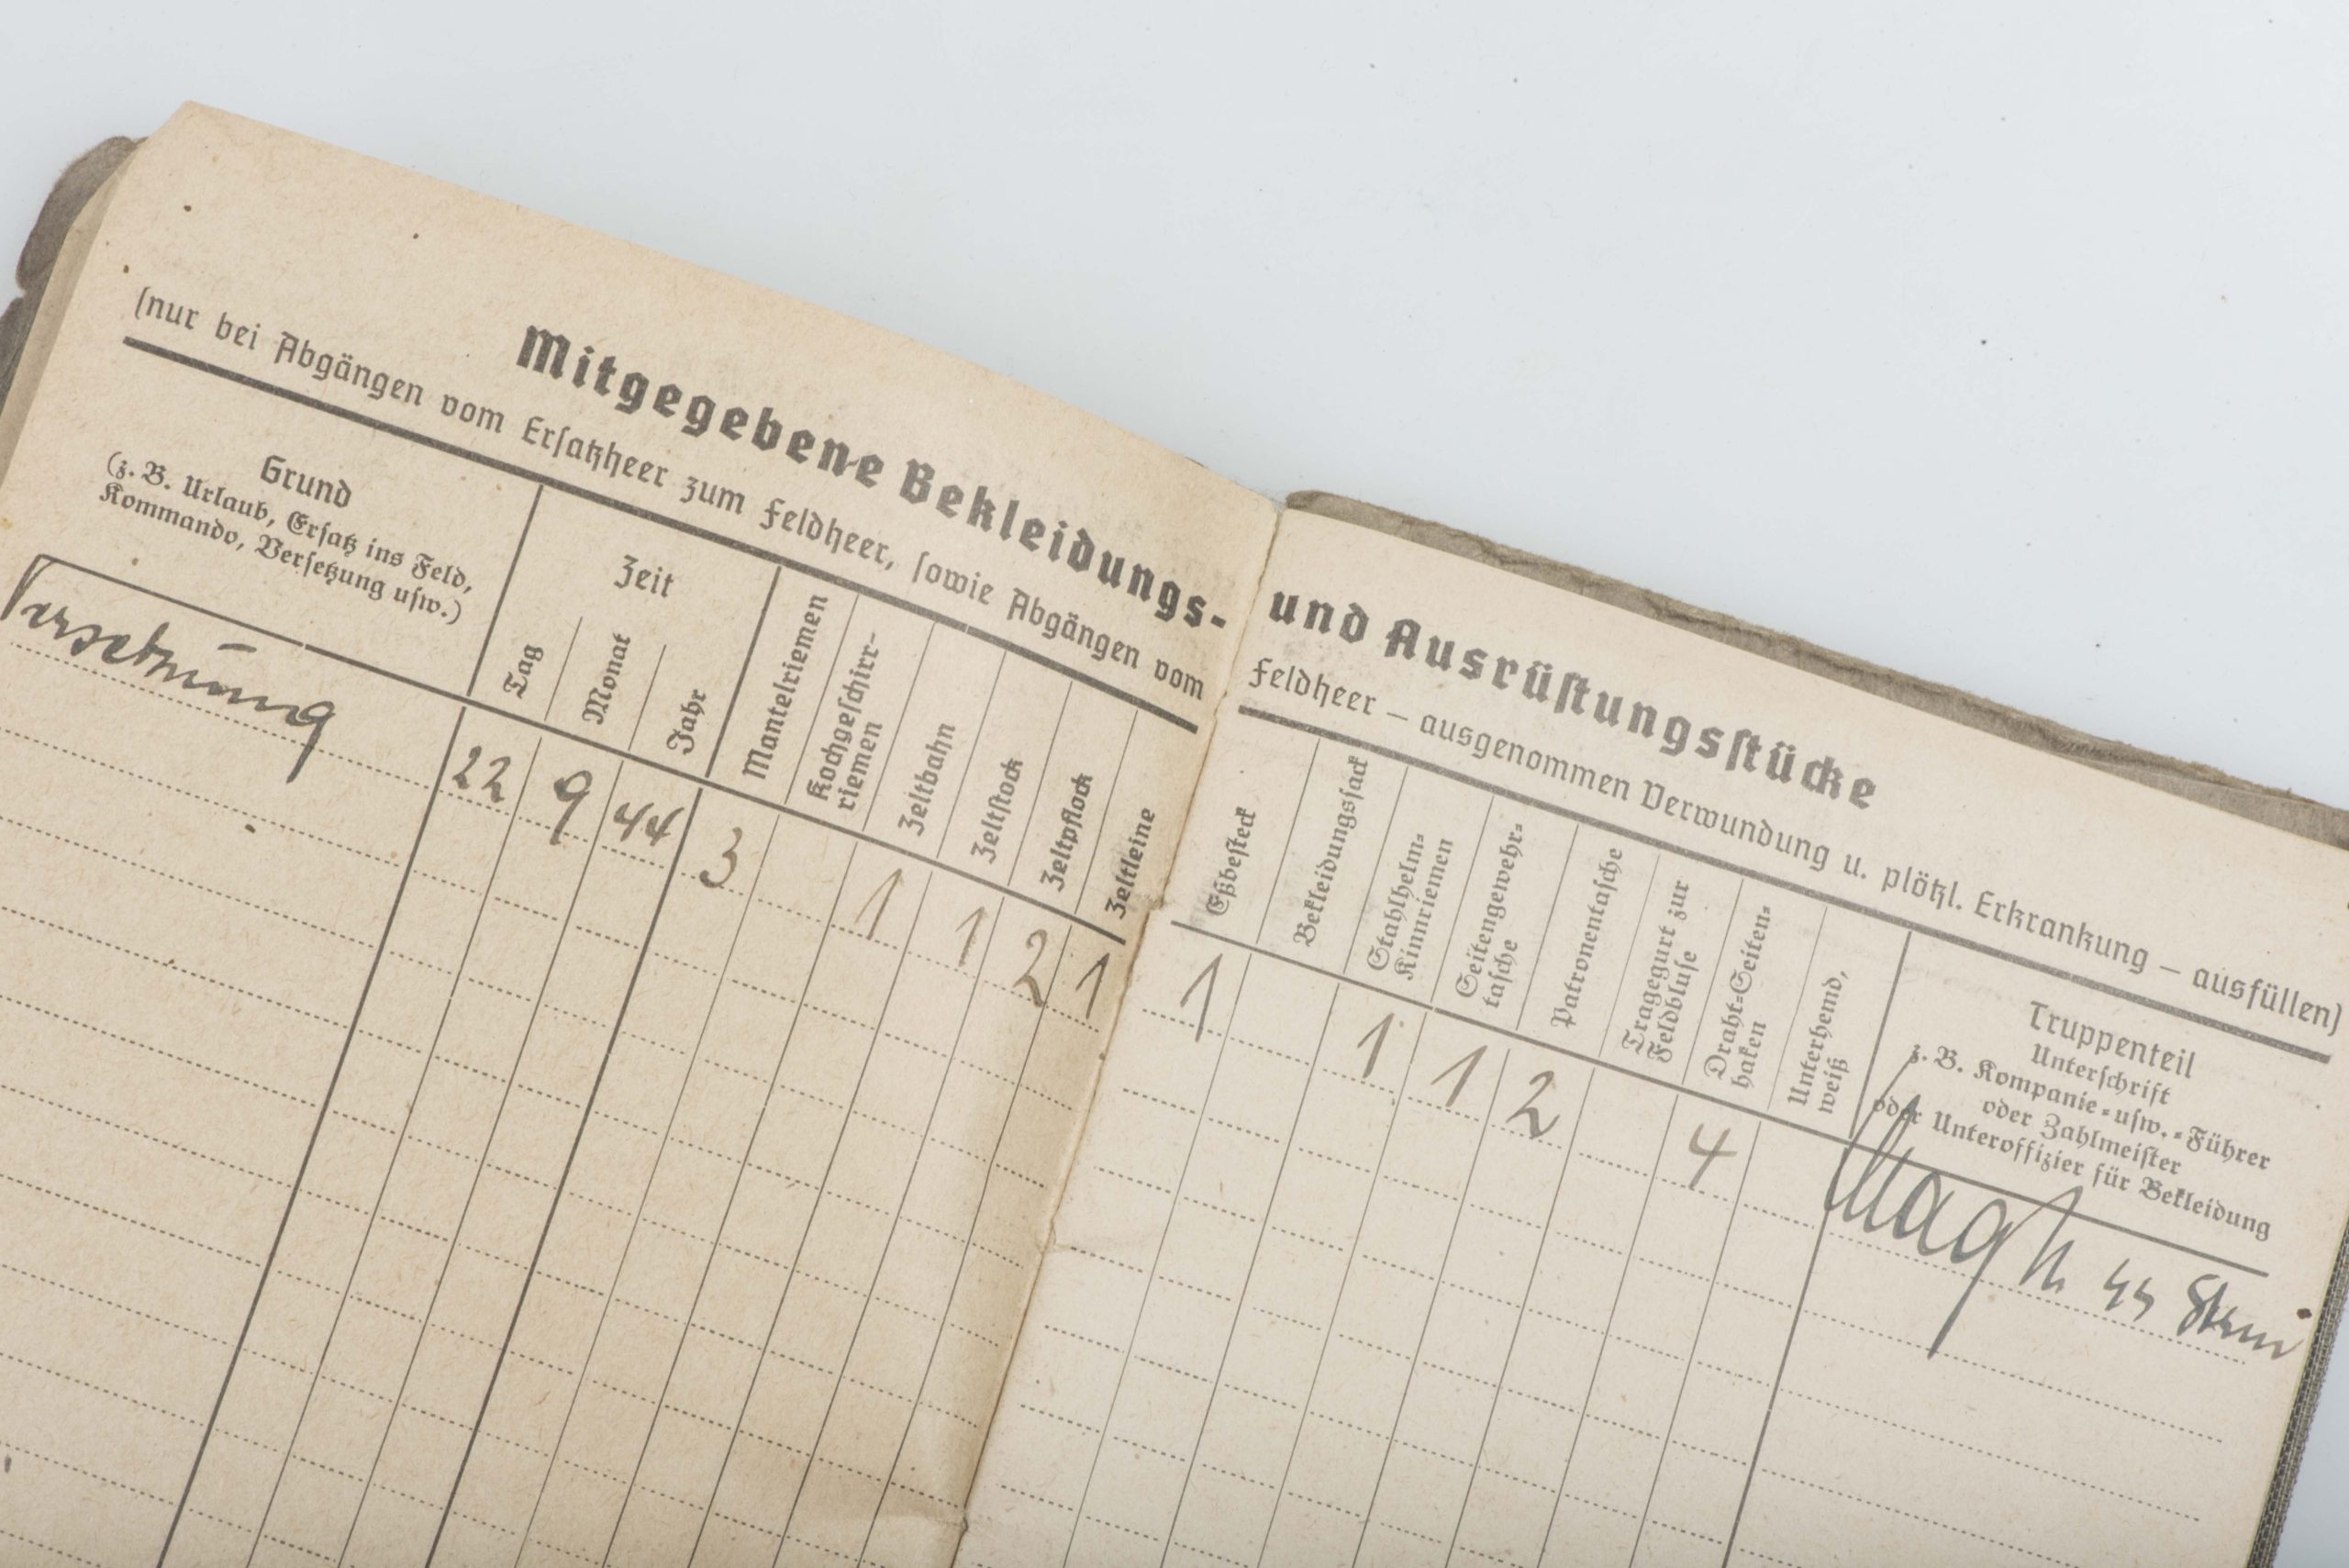 Mitgegebene Bekleidungs-
(nur bei Abgängen vom Ersatzheer zum Feldheer, sowie Abgängen vom
Grund
(z. B. Urlaub, Ersatz ins Feld,
Kommando, Versetzung usw.)
Zeit
Tag
Monat
Jahr
Mantelriemen
Kochgeschirr-
riemen
Zeltbahn
Zeltstock
Zeltpflock
Zeltleine
Versetzung 22 9 44 3 1 1 2 1
und Ausrüstungsstücke
Feldheer – ausgenommen Verwundung u. plötzl. Erkrankung – ausfüllen)
Eßbesteck
Bekleidungssack
Stahlhelm-
Kinnriemen
Seitengewehr-
tasche
Patronentasche
Tragegurt zur
Feldbluse
Draht-Seiten-
haken
Unterhemd,
weiß
Truppenteil
Unterschrift
z. B. Kompanie-usw.-Führer
oder Zahlmeister
oder Unteroffizier für Bekleidung
1 1 1 2 4